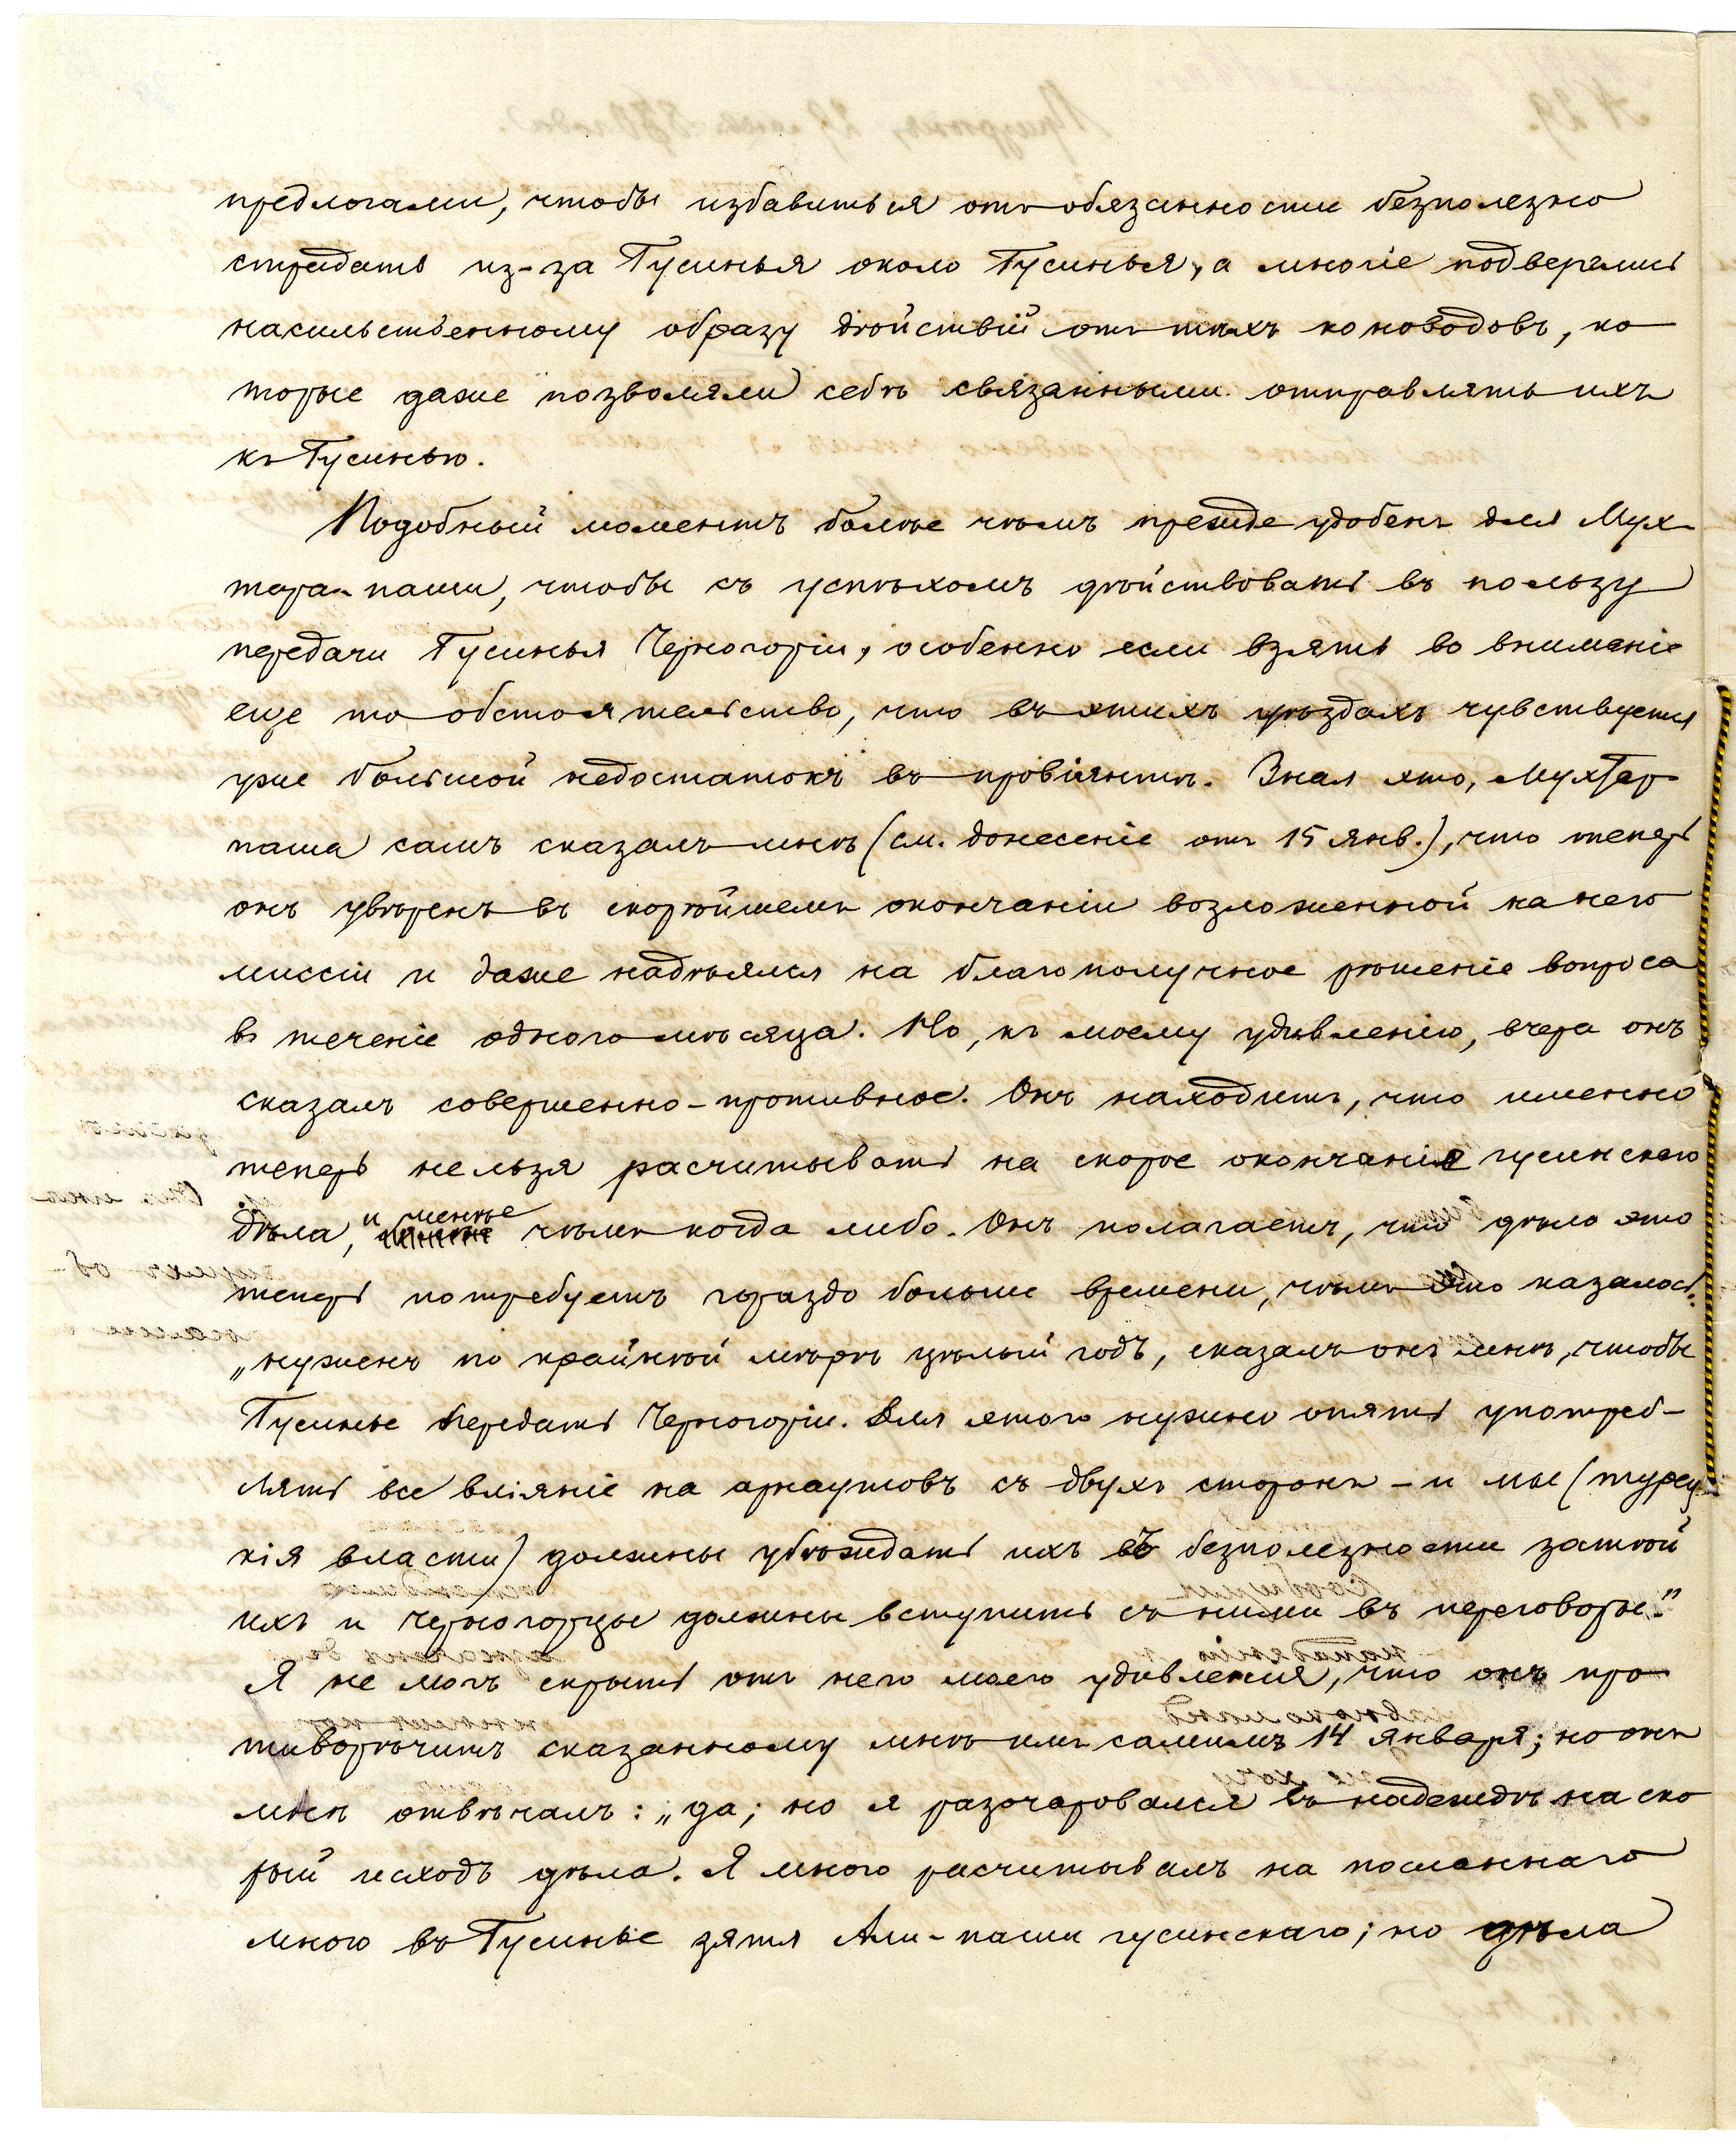 предлогами, чтобы избавиться отъ обязанности безполезно
страдать из-за Гусинья около Гусинья, а многіе подверглись
насильственному образу дѣйствій отъ тѣхъ коноводовъ, ко
торые даже позволяли себѣ связанными отправлять ихъ
къ Гусинью.
Подобный моментъ болѣе чѣмъ прежде удобенъ для Мух-
тара-паши, чтобы съ успѣхомъ дѣйствовать въ пользу
передачи Гусинья Черногоріи, особенно если взять во вниманіе
еще то обстоятельство, что въ этихъ уѣздахъ чувствуется
уже большой недостатокъ въ провіянтѣ. Зная это, Мухтар-
паша самъ сказалъ мнѣ (см. донесеніе отъ 15 янв.), что теперь
онъ увѣренъ въ скорѣйшемъ окончаніи возложенной на него
миссіи и даже надѣялся на благополучное рѣшеніе вопроса
въ теченіе одного мѣсяца. Но, къ моему удивленію, вчера онъ
сказалъ совершенно-противное. Онъ находитъ, что именно
теперь нельзя расчитывать на скорое окончаніе гусинскаго
дѣла, и менѣе чѣмъ когда либо. Онъ полагаетъ, что дѣло это
теперь потребуетъ гораздо больше времени, чѣмъ это казалось:
„нуженъ по крайнѣй мѣрѣ цѣлый годъ, сказалъ онъ мнѣ, чтобы
Гусинье передать Черногоріи. Для этого нужно опять употреб-
лять все вліяніе на арнаутовъ съ двухъ сторонъ - и мы (турец
кія власти) должны убѣждать ихъ въ безполезности затѣй
ихъ и Черногорцы должны вступить съ ними въ переговоры."
Я не могъ скрыть отъ него моего удивленія, что онъ про
тиворѣчитъ сказанному мнѣ имъ самимъ 14 января; но онъ
мнѣ отвѣчалъ: „да; но я разочаровался въ надеждѣ на ско
рый исходъ дѣла. Я много расчитывалъ на посланнаго
мною въ Гусинье зятя Али-паши гусинскаго; но дѣла